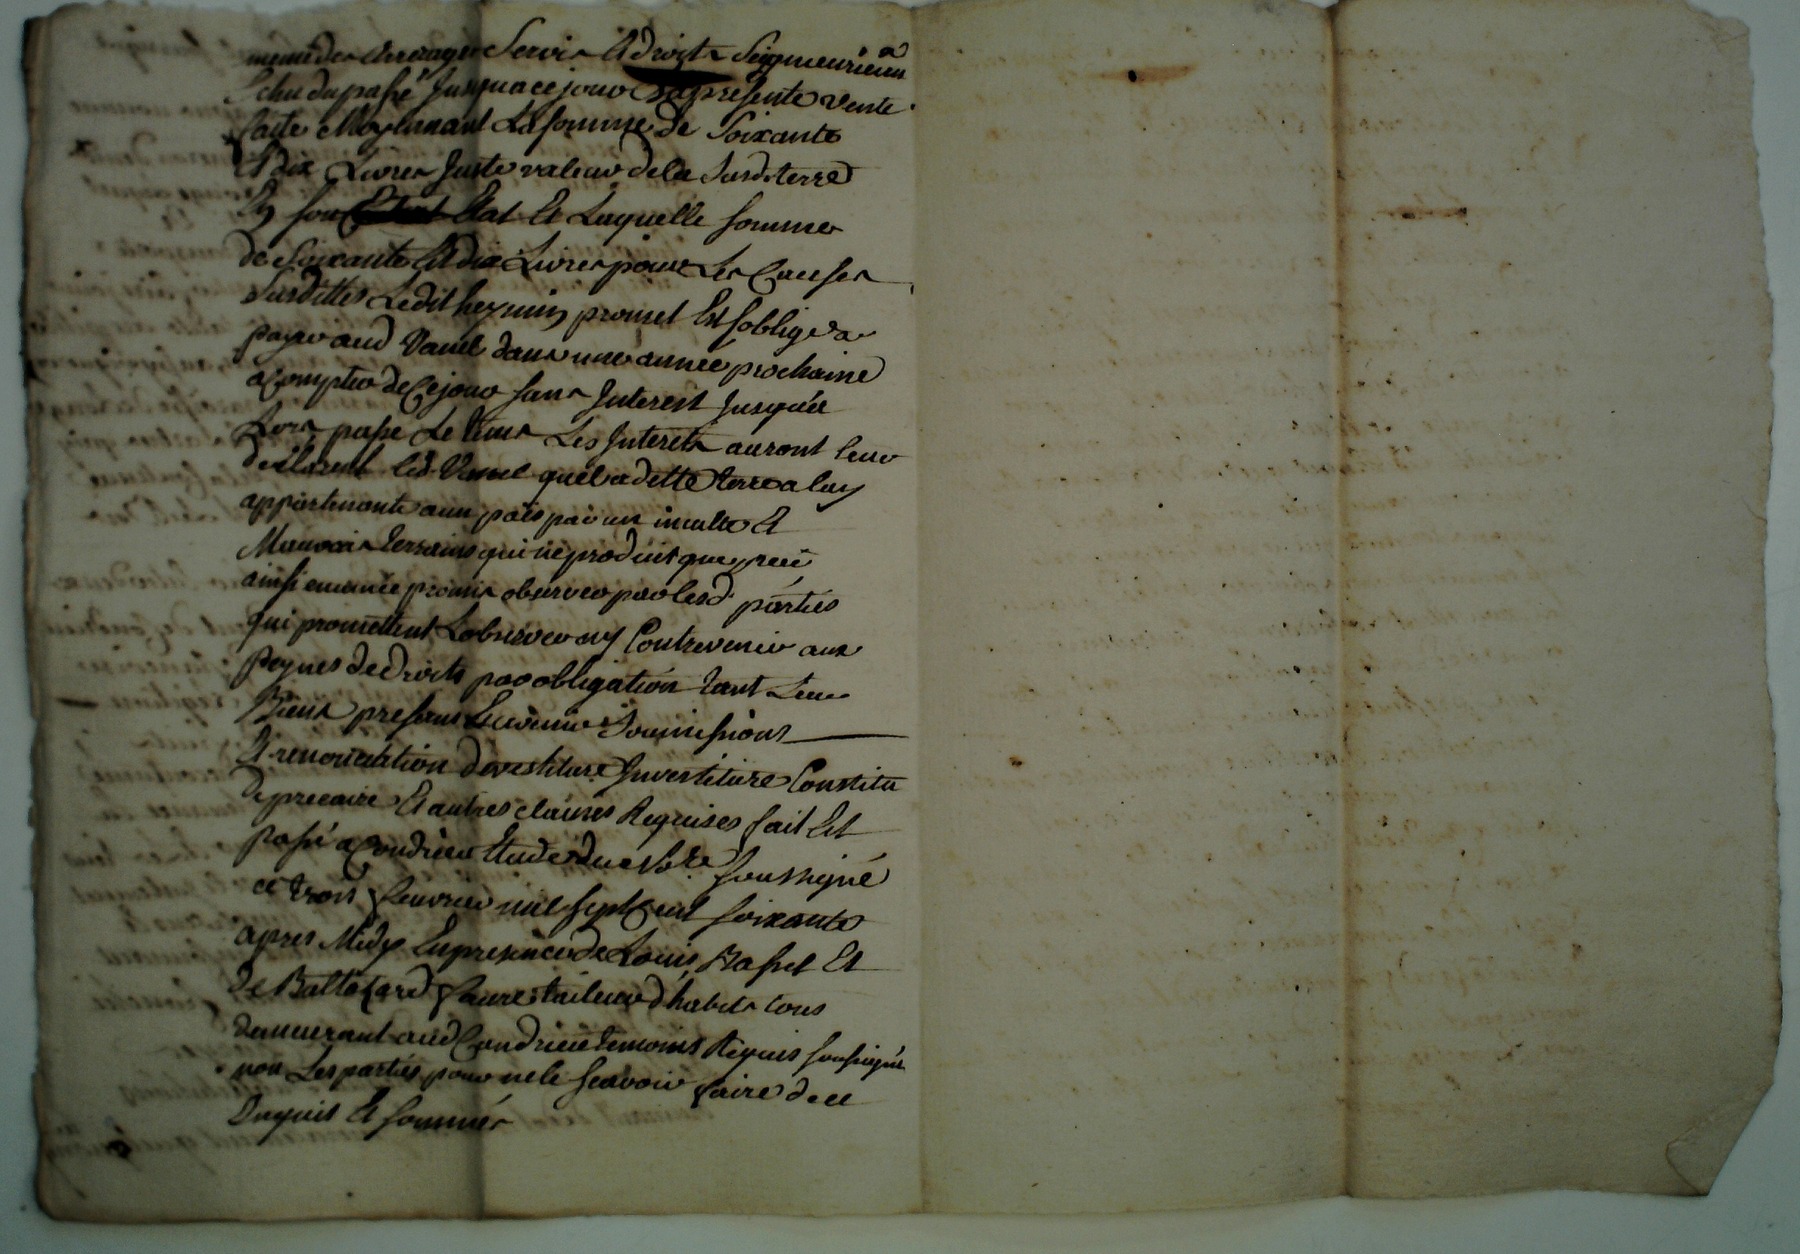 meme des arrerages Servis & droits Seigneuriaux
Echu du passé Jusqua ce jour La presente vente
faite Moyennant La somme de Soixante
Et dix Livres Juste valeur de la Susd. terre
En son Etat Et Laquelle somme
de Soixante Et dix Livres pour Les Causes
Susdittes Ledit heymin promet Et soblige a
payer aud Vanel dans une année prochaine
a Compter de Cejour sans Interest Jusqu'a
Lors passé Le tems Les Interets auront leur
declarent led. Vanel que ladette terre a luy
appartenante aun inculte Et
Mauvais terrains qui ne produit que peu
ainsi promis observer par lesd. parties
qui promettent Lobserver ny Contrevenir aux
peynes de droits par obligation tant Leur
Biens presans Eavenir Soumissions
Et renonciation devestiture Investiture Constitu
de precaire Et autres clauses Requises fait Et
passé a Condrieu Etude du Nore. soussigné
ce trois fevrier mil sept Cent soixante
apres Midy En presence de Louis Basset Et
de Baltazard faure tailleur d'habits tous
demeurant aud Condrieu temoins Requis soussignés
non Les parties pour ne le scavoir faire de ce
Enquis Et sommés